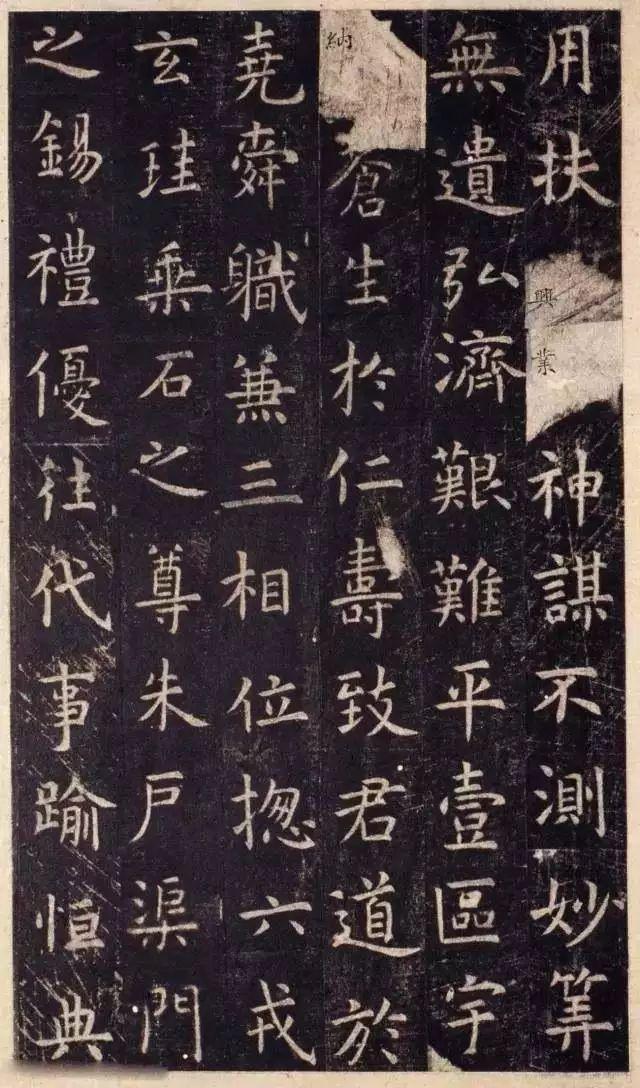 用扶興業神謀不測妙筭
無遺弘濟艱難平壹區宇
納蒼生於仁壽致君道於
堯舜職兼三相位揔六戎
玄珪乘石之尊朱戶渠門
之錫禮優往代事踰恒典